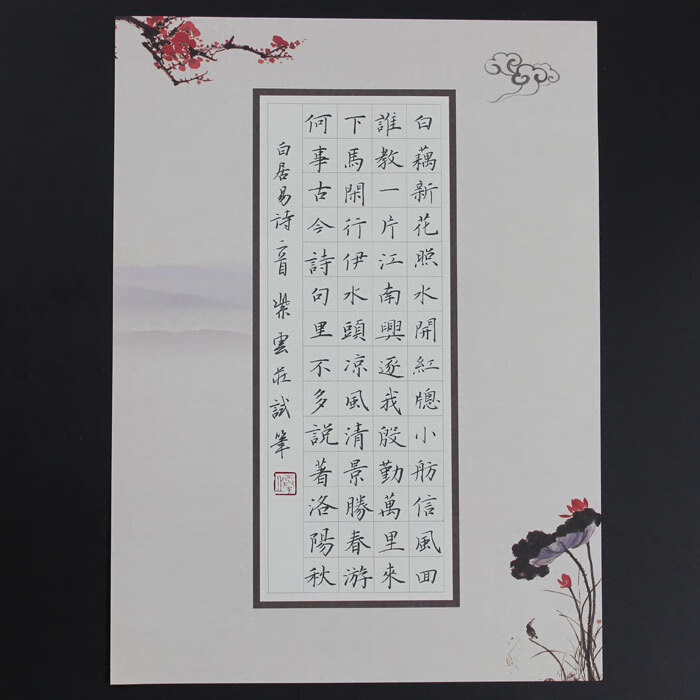 白藕新花照水開紅牕小舫信風囬
誰教一片江南興逐我殷勤萬里來
下馬閑行伊水頭凉風清景勝春游
何事古今詩句里不多説著洛陽秋
白居易詩二首 紫雲莊試筆